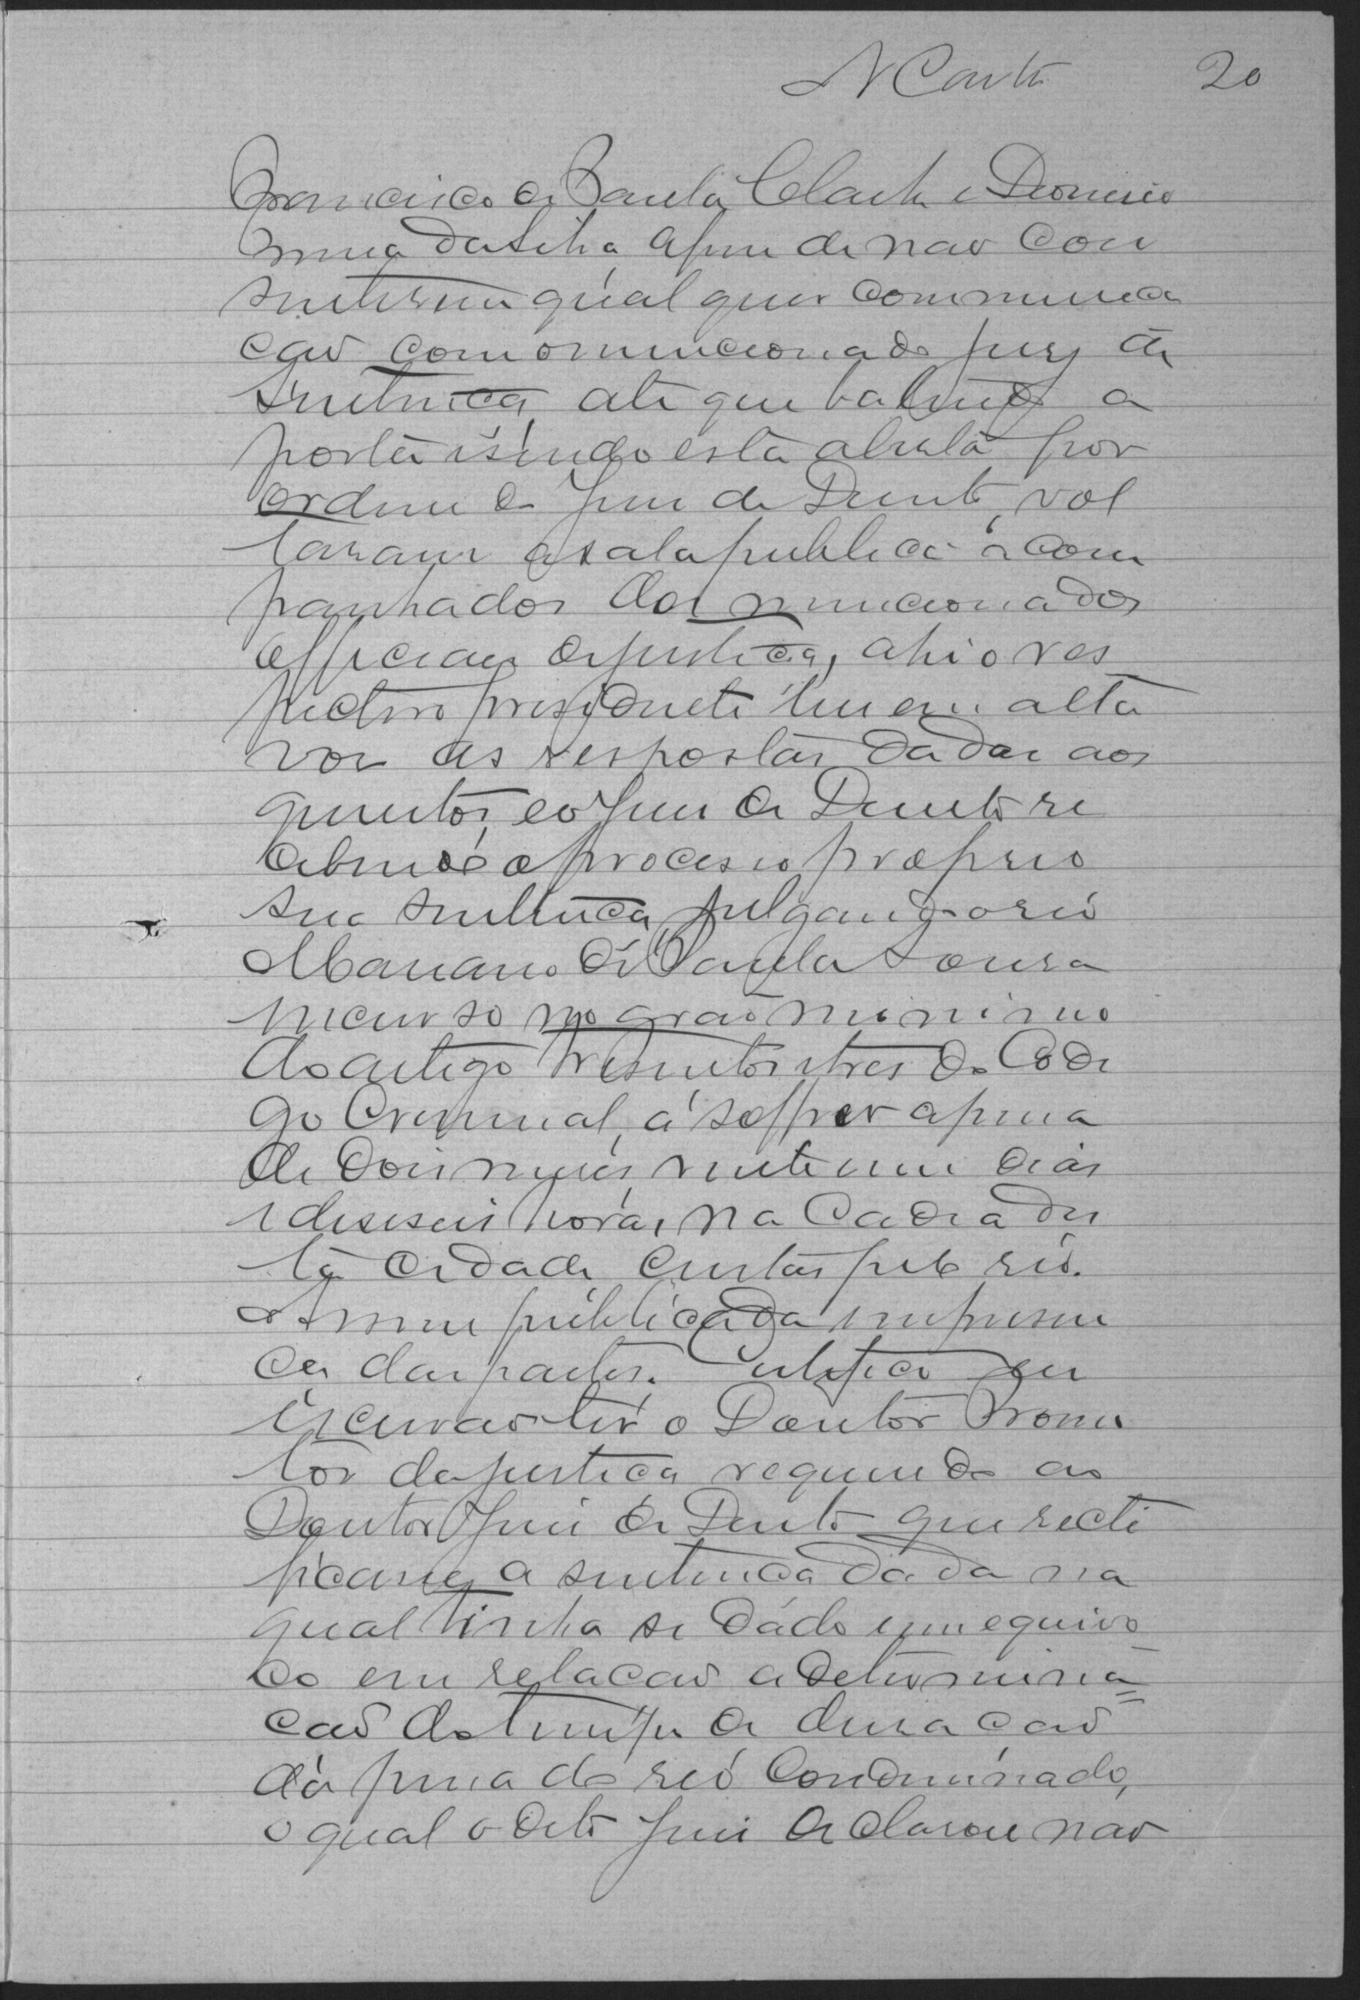 20
Francisco de Paula e Dionisio
da Silva afim de não con
sentirem qualquer communica
ção com o mencionado jury de
sentença, até que batendo a
porta e sendo esta aberta por
ordem do Juiz de Direito, vol
taram a sala publica acom
panhados dos mencionados
officiaes de justiça, ahi o res
pectivo presidente leu em alta
voz as respostas dadas aos
quesitos, e o Juiz de Direito re
cebendo o processo proferio
sua sentença, julgando o reo
Mariano de Paula Sousa
incurso no grao minimo
do artigo tresentos e tres do Codi
go Criminal, a soffrer a pena
de dois meses, vinte e um dias
e deseseis horas, na Cadea des
ta cidade e custas pelo reo.
E assim publicada em presen
ça das partes. Certifico eu
Escrivão ter o Doutor Promo
tor da justiça requerido ao
Doutor Juiz de Direito que recti
ficasse a sentença dada na
qual tinha se dado um equivo
co em relação a determina
ção do tempo de duração
da pena do reo Condemnado,
o qual o dito Juiz declarou não